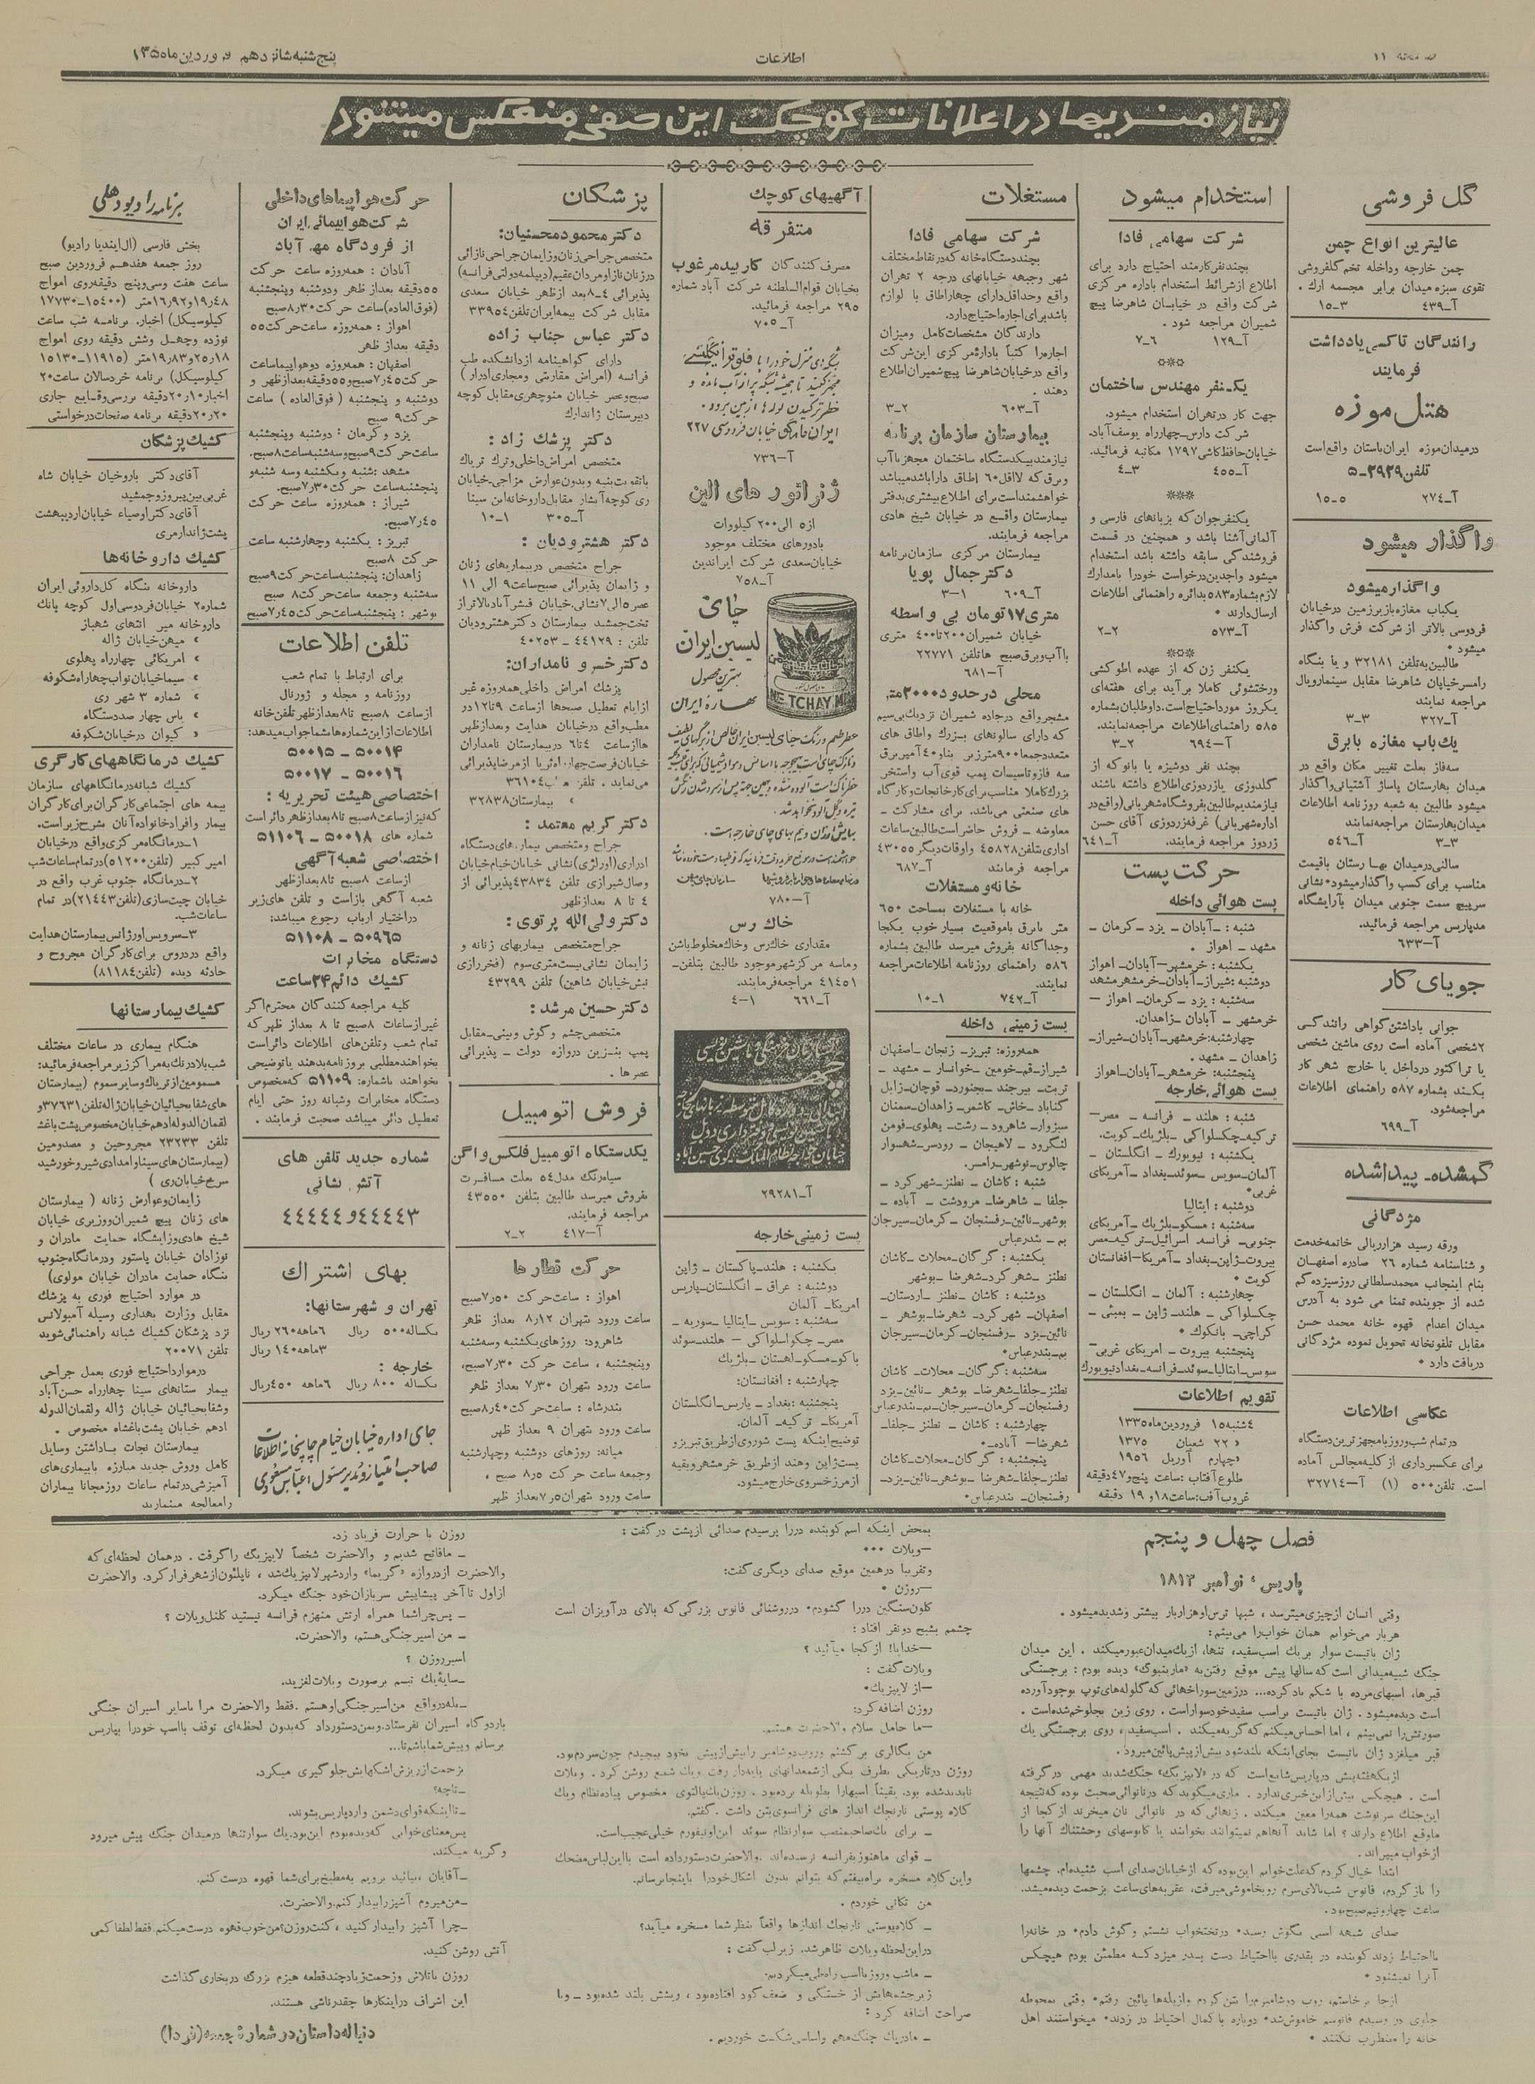 صفحه ۱۱
اطلاعات
پنج‌شنبه شانزدهم فروردین ماه ۱۳۵
نیازمندیها در اعلانات کوچک این صفحه منعکس میشود
گل فروشی
عالیترین انواع چمن
چمن خارجه و داخله تخم گلفروشی
تقوی سبزه میدان برابر مجسمه ارك .
آ-۴۳۹ ۳-۱۵
رانندگان تاکسی یادداشت
فرمایند
هتل موزه
در میدان موزه ایران باستان واقع است
تلفن ۲۹۲۹-۵
آ-۲۷۴ ۵-۱۵
واگذار میشود
واگذار میشود
یکباب مغازه با زیرزمین در خیابان
فردوسی بالاتر از شرکت فرش واگذار
میشود
طالبین به تلفن ۳۲۱۸۱ و یا بنگاه
رامسر خیابان شاهرضا مقابل سینما رویال
مراجعه نمایند
آ-۳۲۷ ۳-۳
یك باب مغازه با برق
سه فاز بعلت تغییر مکان واقع در
میدان بهارستان پاساژ آشتیانی واگذار
میشود طالبین به شعبه روزنامه اطلاعات
میدان بهارستان مراجعه نمایند
۳-۳ آ-۵۴۶
سالنی در میدان بهارستان باقیمت
مناسب برای کسب واگذار میشود نشانی
سرپیچ سمت جنوبی میدان با آرایشگاه
مدپاریس مراجعه فرمائید.
آ-۶۳۳
جویای کار
جوانی با داشتن گواهی رانندگی
۲ شخصی آماده است روی ماشین شخصی
یا تراکتور در داخل یا خارج شهر کار
بکند بشماره ۵۸۷ راهنمای اطلاعات
مراجعه شود.
آ-۶۹۹
گمشده-پیداشده
مژدگانی
ورقه رسید هزار ریالی خاتمه خدمت
و شناسنامه شماره ۲۶ صادره اصفهان
بنام اینجانب محمدسلطانی روز سیزده گم
شده از جوینده تمنا می شود به آدرس
میدان اعدام قهوه خانه محمد حسن
مقابل تلفونخانه تحویل نموده مژدگانی
دریافت دارد
عکاسی اطلاعات
در تمام شب و روز با مجهزترین دستگاه
برای عکسبرداری از کلیه مجالس آماده
است. تلفن ۵۰۰ (۱) آ-۳۲۷۱۴
استخدام میشود
شرکت سهامی فادا
بچند نفر کارمند احتیاج دارد برای
اطلاع از شرائط استخدام باداره مرکزی
شرکت واقع در خیابان شاهرضا پیچ
شمیران مراجعه شود .
آ-۱۲۹ ۶-۷
یک نفر مهندس ساختمان
جهت کار در تهران استخدام میشود.
شرکت دارس-چهارراه یوسف آباد.
خیابان حافظ کاشی ۱۷۹۷ مکاتبه فرمائید.
آ-۴۵۵ ۳-۴
یکنفر جوان که بزبانهای فارسی و
آلمانی آشنا باشد و همچنین در قسمت
فروشندگی سابقه داشته باشد استخدام
میشود واجدین درخواست خود را با مدارك
لازم بشماره ۵۸۳ بدائره راهنمائی اطلاعات
ارسال دارند
آ-۵۷۳ ۲-۲
یکنفر زن که از عهده اطوکشی
و رختشوئی کاملا برآید برای هفته‌ای
یکروز مورد احتیاج است. داوطلبان بشماره
۵۸۵ راهنمای اطلاعات مراجعه نمایند.
آ-۶۹۴ ۲-۳
چند نفر دوشیزه یا بانو که از
گلدوزی یا زردوزی اطلاع داشته باشند
نیازمندیم طالبین بفروشگاه شهربانی (واقع در
اداره شهربانی) غرفه زردوزی آقای حسن
زردوز مراجعه فرمایند. آ-۶۴۱
حرکت پست
پست هوائی داخله
شنبه : -آبادان - یزد -کرمان -
مشهد - اهواز .
یکشنبه : خرمشهر-آبادان-اهواز
دوشنبه : شیراز-آبادان-خرمشهر مشهد
سه‌شنبه : یزد -کرمان- اهواز -
خرمشهر - آبادان -زاهدان.
چهارشنبه:خرمشهر-آبادان-شیراز-
زاهدان - مشهد .
پنجشنبه: خرمشهر-آبادان-اهواز
پست هوائی خارجه
شنبه : هلند - فرانسه - مصر-
ترکیه-چکسلواکی -بلژیك-کویت.
یکشنبه : نیویورك - انگلستان -
آلمان-سویس -سوئد-بغداد-آمریکای
غربی
دوشنبه : ایتالیا
سه‌شنبه : مسکو-بلژیك -آمریکای
جنوبی- فرانسه اسرائیل-ترکیه-مصر
بیروت-ژاپن-بغداد-آمریکا-افغانستان
کویت
چهارشنبه : آلمان - انگلستان -
چکسلواکی - هلند- ژاپن - بمبئی -
کراچی- بانکوك
پنجشنبه بیروت - امریکای غربی-
سویس-ایتالیا-سوئد-فرانسه-بغداد نیویورك
تقویم اطلاعات
۴شنبه ۱۵ فروردین ماه ۱۳۳۵
۲۲ شعبان ۱۳۷۵
چهارم آوریل ۱۹۵۶
طلوع آفتاب : ساعت پنج و ۴۷ دقیقه
غروب آفتاب: ساعت ۱۸ و ۱۹ دقیقه
مستغلات
شرکت سهامی فادا
بچند دستگاه خانه که در نقاط مختلف
شهر و جبهه خیابانهای درجه ۲ تهران
واقع وحداقل دارای چهار اطاق با لوازم
باشد برای اجاره احتیاج دارد.
دارندگان مشخصات کامل و میزان
اجاره را کتباً بادارهٔ مرکزی این شرکت
واقع در خیابان شاهرضا پیچ شمیران اطلاع
دهند .
آ-۶۰۳ ۲-۳
بیمارستان سازمان برنامه
نیازمند بیکدستگاه ساختمان مجهز با آب
وبرق که لااقل ۶۰ اطاق دارا باشد میباشد
خواهشمند است برای اطلاع بیشتری بدفتر
بیمارستان واقع در خیابان شیخ هادی
مراجعه فرمایند.
بیمارستان مرکزی سازمان برنامه
دکتر جمال پویا
آ-۶۰۹ ۱-۳
متری ۱۷ تومان بی واسطه
خیابان شمیران ۲۰۰ تا ۴۰۰ متری
با آب و برق صبح ها تلفن ۲۲۷۷۱
آ-۶۸۱
محلی در حدود ۲۰۰۰ متر
مشجر واقع در جاده شمیران نزدیك بی‌سیم
که دارای سالونهای بزرك و اطاق های
متعدد جمعا ۹۰۰ متر زیر بنا و ۴۰ آمپر برق
سه فاز و تاسیسات پمپ قوی آب و استخر
بزرك کاملا مناسب برای کارخانجات و کارگاه
های صنعتی میباشد. برای مشارکت -
معاوضه - فروش حاضر است طالبین ساعات
اداری بتلفن ۴۵۸۲۸ و اوقات دیگر ۴۳۰۵۵
مراجعه فرمایند آ-۶۸۷
خانه و مستغلات
خانه با مستغلات بمساحت ۶۵۰
متر با برق با موقعیت بسیار خوب یکجا
وجداگانه بفروش میرسد طالبین بشماره
۵۸۶ راهنمای روزنامه اطلاعات مراجعه
نمایند.
آ-۷۴۲ ۱-۱۰
پست زمینی داخله
همه روزه : تبریز- زنجان -اصفهان
شیراز-قم-خومین -خوانسار - مشهد -
تربت- بیرجند -بجنورد -قوچان-زابل
گناباد -خاش- کاشمر- زاهدان-سمنان
سبزوار- شاهرود - رشت- پهلوی-فومن
لنگرود - لاهیجان - رودسر-شهسوار
چالوس-نوشهر-رامسر.
شنبه : کاشان - نطنز -شهرکرد -
جلفا - شاهرضا- مرودشت - آباده -
بوشهر-نائین-رفسنجان - کرمان-سیرجان
بم - بندرعباس
یکشنبه : گرگان-محلات -کاشان
نطنز -شهرکرد-شهرضا -بوشهر
دوشنبه : کاشان - نطنز -اردستان-
اصفهان- شهرکرد- شهرضا -بوشهر -
نائین-یزد -رفسنجان-کرمان-سیرجان
بم-بندرعباس
سه‌شنبه : گرگان- محلات -کاشان
نطنز-جلفا-شهرضا- بوشهر -نائین-یزد
رفسنجان-کرمان-سیرجان-بم-بندرعباس
چهارشنبه : کاشان - نطنز -جلفا-
شهرضا- آباده-
پنجشنبه : گرگان-محلات-کاشان
نطنز-جلفا-شهرضا-بوشهر-نائین-یزد-
رفسنجان- بندرعباس
آگهیهای کوچك
متفرقه
مصرف کنندگان کاربید مرغوب
بخیابان قوام السلطنه شرکت آباد شماره
۲۹۵ مراجعه فرمائید.
آ-۷۰۵
خیابان فردوسی ۲۲۷
آ-۷۳۶
ژنراتورهای الین
از ۵ الی ۲۰۰ کیلووات
بادورهای مختلف موجود
خیابان سعدی شرکت ایراندین
آ-۷۵۸
چای
لیپسن ایران
بهترین محصول
بهاره ایران
ME TCHAY MI
آ-۷۸۰
خاك رس
مقداری خاك رس و خاك مخلوط باشن
وماسه مرکز شهر موجود طالبین بتلفن-
۴۱۴۵۱ مراجعه فرمایند.
آ-۶۶۱ ۱-۴
چهر
آ-۲۹۲۸۱
پست زمینی خارجه
یکشنبه : هلند-پاکستان - ژاپن
دوشنبه : عراق - انگلستان-پاریس
امریکا- آلمان
سه‌شنبه : سویس -ایتالیا -سوریه -
مصر- چکواسلواکی - هلند-سوئد
باکو-مسکو-لهستان -بلژیك
چهارشنبه : افغانستان:
پنجشنبه : بغداد - پاریس-انگلستان
آمریکا- ترکیه- آلمان.
توضیح اینکه پست شوروی از طریق تبریز و
پست ژاپن وهند از طریق خرمشهر و بقیه
از مرز خسروی خارج میشود.
پزشکان
دکتر محمود محسنیان:
متخصص جراحی زنان و زایمان جراحی نازائی
در زنان نازا و مردان عقیم(دیپلمه دولتی فرانسه)
پذیرائی ۴-۸ بعد از ظهر خیابان سعدی
مقابل شرکت بیمه ایران تلفن ۳۳۹۵۴
دکتر عباس جناب زاده
دارای گواهینامه از دانشکده طب
فرانسه (امراض مقاربتی و مجاری ادرار)
صبح وعصر خیابان منوچهری مقابل کوچه
دبیرستان ژاندارك
دکتر پزشك زاد :
متخصص امراض داخلی و ترك تریاك
باتقویت بنیه و بدون عوارض مزاجی-خیابان
ری کوچه آبشار مقابل داروخانه ابن سینا
آ-۳۰۵ ۱-۱۰
دکتر هشترودیان :
جراح متخصص در بیماریهای زنان
و زایمان پذیرائی صبح ساعت ۹ الی ۱۱
عصر ۵ الی ۷ نشانی-خیابان فیشرآباد بالاتر از
تخت جمشید بیمارستان دکتر هشترودیان
تلفن : ۴۴۱۲۹ - ۴۰۲۵۳
دکتر خسرو نامداران:
پزشك امراض داخلی همه روزه غیر
از ایام تعطیل صبحها از ساعت ۹ تا ۱۲ در
مطب واقع در خیابان هدایت و بعد از ظهر
ها از ساعت ۴ تا ۶ در بیمارستان نامداران
خیابان فرصت چهارراه ثریا از مرضا پذیرائی
می نماید . تلفن مطب ۳۶۱۰۴
» بیمارستان ۳۲۸۳۸
دکتر کریم معتمد :
جراح و متخصص بیماریهای دستگاه
ادراری (اورلژی) نشانی خیابان خیام خیابان
وصال شیرازی تلفن ۴۳۸۳۴ پذیرائی از
۴ تا ۸ بعد از ظهر
دکتر ولی الله پرتوی :
جراح متخصص بیماریهای زنانه و
زایمان نشانی بیست متری سوم (فخررازی
نبش خیابان شاهین) تلفن ۴۳۲۹۹
دکتر حسین مرشد :
متخصص چشم و گوش و بینی-مقابل
پمپ بنزین دروازه دولت - پذیرائی
عصرها .
فروش اتومبیل
یکدستگاه اتومبیل فلکس واگن
سیاه رنگ مدل ۵۴ بعلت مسافرت
بفروش میرسد طالبین بتلفن ۴۳۵۵۰
مراجعه فرمایند.
آ-۴۱۷ ۲-۲
حرکت قطارها
اهواز : ساعت حرکت ۷٫۵۰ صبح
ساعت ورود تهران ۸٫۱۲ بعداز ظهر
شاهرود: روزهای یکشنبه و سه‌شنبه
وپنجشنبه ، ساعت حرکت ۷٫۳۰ صبح،
ساعت ورود تهران ۷٫۳۰ بعداز ظهر
بندرشاه : ساعت حرکت ۸٫۴۰ صبح
ساعت ورود تهران ۹ بعداز ظهر
میانه: روزهای دوشنبه و چهارشنبه
وجمعه ساعت حرکت ۸٫۵ صبح ،
ساعت ورود تهران ۷٫۵ بعداز ظهر
حرکت هواپیماهای داخلی
شرکت هواپیمائی ایران
از فرودگاه مهرآباد
آبادان : همه روزه ساعت حرکت
۵۵ دقیقه بعداز ظهر و دوشنبه و پنجشنبه
(فوق العاده) ساعت حرکت ۸٫۳۰ صبح
اهواز : همه روزه ساعت حرکت ۵۵
دقیقه بعداز ظهر
اصفهان : همه روزه دو هواپیما ساعت
حرکت ۷٫۴۵ صبح و ۵۵ دقیقه بعداز ظهر و
دوشنبه و پنجشنبه (فوق العاده) ساعت
حرکت ۹ صبح
یزد وکرمان : دوشنبه و پنجشنبه
ساعت حرکت ۹ صبح و سه‌شنبه ساعت ۸ صبح.
مشهد :شنبه ویکشنبه و سه شنبه و
پنجشنبه ساعت حرکت ۷٫۳۰ صبح.
شیراز : همه روزه ساعت حرکت
۷٫۴۵ صبح.
تبریز : یکشنبه و چهارشنبه ساعت
حرکت ۸ صبح
زاهدان: پنجشنبه ساعت حرکت ۹ صبح
سه‌شنبه وجمعه ساعت حرکت ۸ صبح
بوشهر : پنجشنبه ساعت حرکت ۷٫۴۵ صبح
تلفن اطلاعات
برای ارتباط با تمام شعب
روزنامه و مجله و ژورنال
از ساعت ۸ صبح تا ۸ بعد از ظهر تلفن خانه
اطلاعات از این شماره ها شما جواب میدهد:
۵۰۰۱۴ - ۵۰۰۱۵
۵۰۰۱۶ - ۵۰۰۱۷
اختصاصی هیئت تحریریه :
که نیز از ساعت ۸ صبح تا ۸ بعداز ظهر دائر است
شماره های ۵۰۰۱۸ - ۵۱۱۰۶
اختصاصی شعبه آگهی
از ساعت ۸ صبح تا ۸ بعداز ظهر
شعبه آگهی باز است و تلفن های زیر
در اختیار ارباب رجوع میباشد:
۵۰۹۶۵ - ۵۱۱۰۸
دستگاه مخابرات
کشیك دائم ۲۴ ساعت
کلیه مراجعه کنندگان محترم اگر
غیر از ساعات ۸ صبح تا ۸ بعداز ظهر که
تمام شعب و تلفن‌های اطلاعات دائر است
بخواهند مطلبی بروزنامه بدهند یا توضیحی
بخواهند باشماره: ۵۱۱۰۹ که مخصوص
دستگاه مخابرات وشبانه روز حتی ایام
تعطیل دائر میباشد صحبت فرمایند .
شماره جدید تلفن های
آتش نشانی
۴۴۴۴۳ و ۴۴۴۴۴
بهای اشتراك
تهران و شهرستانها:
یکساله ۵۰۰ ریال ۶ماهه ۲۶۰ ریال
۳ماهه ۱۴۰ ریال
خارجه :
یکساله ۸۰۰ ریال ۶ماهه ۴۵۰ ریال
جای اداره خیابان خیام چاپخانه اطلاعات
صاحب امتیاز و مدیر مسئول : عباس مسعودی
برنامه رادیو دهلی
بخش فارسی (ال ایندیا رادیو)
روز جمعه هفدهم فروردین صبح
ساعت هفت وسی و پنج دقیقه روی امواج
۱۹٫۴۸ و ۱۶٫۹۲ متر (۱۵۴۰۰-۱۷۷۳۰
کیلوسیکل) اخبار. برنامه شب ساعت
نوزده و چهل و شش دقیقه روی امواج
۲۵٫۱۸ و ۱۹٫۸۳ متر (۱۱۹۱۵-۱۵۱۳۰
کیلوسیکل) برنامه خردسالان ساعت ۲۰
اخبار ۲۰٫۱۰ دقیقه بررسی وقایع جاری
۲۰٫۲۰ دقیقه برنامه صفحات درخواستی
کشیك پزشکان
آقای دکتر باروخیان خیابان شاه
غربی بین پیروز و جمشید
آقای دکتر اوصیاء خیابان اردیبهشت
پشت ژاندارمری
کشیك داروخانه‌ها
داروخانه بنگاه کل داروئی ایران
شماره ۲ خیابان فردوسی اول کوچه بانك
داروخانه میر انتهای شهباز
» میهن خیابان ژاله
» امریکائی چهارراه پهلوی
» سینما خیابان نواب چهارراه شکوفه
» شماره ۳ شهر ری
» یاس چهار صد دستگاه
» کیوان در خیابان شکوفه
کشیك درمانگاههای کارگری
کشیك شبانه درمانگاههای سازمان
بیمه های اجتماعی کارگران برای کارگران
بیمار وافراد خانواده آنان بشرح زیر است.
۱-درمانگاه مرکزی واقع در خیابان
امیرکبیر (تلفن ۵۱۲۰۰) در تمام ساعات شب
۲-درمانگاه جنوب غرب واقع در
خیابان چیت سازی (تلفن ۲۱۴۴۳) در تمام
ساعات شب.
۳-سرویس اورژانس بیمارستان هدایت
واقع در دروس برای کارگران مجروح و
حادثه دیده (تلفن ۸۱۱۸۴)
کشیك بیمارستانها
هنگام بیماری در ساعات مختلف
شب بلادرنك به مراکز زیر مراجعه فرمائید:
مسمومین از تریاك وسایر سموم (بیمارستان
های شفا یحیائیان خیابان ژاله تلفن ۳۷۶۳۱ و
لقمان الدوله ادهم خیابان مخصوص پشت باغشاه
تلفن ۲۳۲۳۳ مجروحین و مصدومین
(بیمارستان های سینا و امدادی شیر و خورشید
سرخ خیابان ری )
زایمان و عوارض زنانه ( بیمارستان
های زنان پیچ شمیران و وزیری خیابان
شیخ هادی و زایشگاه حمایت مادران و
نوزادان خیابان پاستور و درمانگاه جنوب
بنگاه حمایت مادران خیابان مولوی)
در موارد احتیاج فوری به پزشك
مقابل وزارت بهداری وسیله آمبولانس
نزد پزشکان کشیك شبانه راهنمائی شوید
تلفن ۲۰۰۷۱
در موارد احتیاج فوری بعمل جراحی
بیمارستانهای سینا چهارراه حسن آباد
وشفا یحیائیان خیابان ژاله و لقمان الدوله
ادهم خیابان پشت باغشاه مخصوص .
بیمارستان نجات با داشتن وسایل
کامل و روش جدید مبارزه با بیماری های
آمیزشی در تمام ساعات روز مجانا بیماران
را معالجه مینماید
فصل چهل و پنجم
پاریس ، نوامبر ۱۸۱۳
وقتی انسان از چیزی میترسد ، شبها ترس او هزار بار بیشتر و شدید میشود .
هر بار می خوابم همان خواب را می بینم :
ژان باتیست سوار بر یك اسب سفید، تنها، از یك میدان عبور میکند . این میدان
جنگ شبیه میدانی است که سالها پیش موقع رفتن به «مارینبورگ» دیده بودم : برجستگی
قبرها، اسبهای مرده با شکم باد کرده... در زمین سوراخهائی که گلوله های توپ بوجود آورده
است دیده میشود . ژان باتیست براسب سفید خود سوار است . روی زین بجلو خم شده است .
صورتش را نمی بینم ، اما احساس میکنم که گریه میکند . اسب سفید، روی برجستگی یك
قبر میلغزد ژان باتیست بجای اینکه بلند شود بیش از پیش پائین میرود .
از یك هفته پیش در پاریس شایع است که در «لایپزیك» جنگ شدید مهمی در گرفته
است . هیچکس بیش از این خبری ندارد . ماری میگوید که در نانوائی صحبت بوده که نتیجه
این جنك سرنوشت همه را معین میکند . زنهائی که در نانوائی نان میخرند از کجا از
ماوقع اطلاع دارند ؟ اما شاید آنها هم نمیتوانند بخوابند یا کابوسهای وحشتناك آنها را
از خواب میپراند .
ابتدا خیال کردم که علت خوابم این بوده که از خیابان صدای اسب شنیده ام. چشمها
را باز کردم، فانوس شب بالای سرم رو بخاموشی میرفت، عقربه های ساعت بزحمت دیده میشد.
ساعت چهار و نیم صبح بود.
صدای شیهه اسبی بگوش رسید در تختخواب نشستم و گوش دادم در خانه را
بااحتیاط زدند کوبنده در بقدری بااحتیاط دست بدر میزد که مطمئن بودم هیچکس
آنرا نمیشنود
از جا برخاستم، روب دوشامبرم را بتن کردم و از پله ها پائین رفتم وقتی بمحوطه
جلوی در رسیدم فانوسم خاموش شد دوباره با کمال احتیاط در زدند میخواستند اهل
خانه را مضطرب نکنند
بمحض اینکه اسم کوبنده در را پرسیدم صدائی از پشت در گفت :
-ویلات ...
وتقریبا در همین موقع صدای دیگری گفت:
-روزن
کلون سنگین در را گشودم در روشنائی فانوس بزرگی که بالای در آویزان است
چشمم بشبح دو نفر افتاد :
-خدایا ! از کجا میآئید ؟
ویلات گفت :
-از لایپزیك
روزن اضافه کرد:
-ما حامل سلام والاحضرت هستیم.
من بگالری برگشتم و روب دوشامبر را بیش از پیش بخود پیچیدم چون سردم بود.
روزن در تاریکی بطرف یکی از شمعدانهای پایه دار رفت و یك شمع روشن کرد . ویلات
ناپدید شده بود. یقیناً اسبها را بطویله برده بود . روزن یك پالتوی مخصوص پیاده نظام و یك
کلاه پوستی نارنجك انداز های فرانسوی بتن داشت . گفتم
- برای یك صاحبمنصب سوار نظام سوئد این اونیفورم خیلی عجیب است.
- قوای ما هنوز بفرانسه نرسیده اند . والاحضرت دستور داده است با این لباس مضحك
و این کلاه مسخره براه بیفتم که بتوانم بدون اشکال خود را باینجا برسانم.
من تکانی خوردم .
- کلاه پوستی نارنجك اندازها واقعاً بنظر شما مسخره میآید؟
در این لحظه ویلات ظاهر شد. زیر لب گفت :
- ماشب وروز با اسب راه طی میکردیم.
زیر چشمهایش از خستگی و ضعف گود افتاده بود ، ریشش بلند شده بود - و با
صراحت اضافه کرد :
- ما در یك جنگ مهم و اساسی شکست خوردیم .
روزن با حرارت فریاد زد.
- ما فاتح شدیم و والاحضرت شخصاً لایپزیك را گرفت . در همان لحظه‌ای که
والاحضرت از دروازه «گریما» وارد شهر لایپزیك شد ، ناپلئون از شهر فرار کرد . والاحضرت
از اول تا آخر پیشاپیش سربازان خود جنگ میکرد.
- پس چرا شما همراه ارتش منهزم فرانسه نیستید کلنل ویلات ؟
- من اسیر جنگی هستم، والاحضرت.
اسیر روزن ؟
-سایهٔ یك تبسم بر صورت ویلات لغزید.
-بله در واقع من اسیر جنگی او هستم . فقط والاحضرت مرا با سایر اسیران جنگی
باردوگاه اسیران نفرستاد، وبمن دستور داد که بدون لحظه‌ای توقف بااسب خود را بپاریس
برسانم و پیش شما باشم تا...
بزحمت از ریزش اشکهایش جلوگیری میکرد.
-تا چه؟
-تا اینکه قوای دشمن وارد پاریس بشوند.
پس معنای خوابی که دیده بودم این بود. یك سوار تنها در میدان جنگ پیش میرود
و گریه میکند.
-آقایان ، بیائید برویم به مطبخ برای شما قهوه درست کنم.
-من میروم آشپز را بیدار کنم، والاحضرت.
-چرا آشپز را بیدار کنید ، کنت روزن؟ من خوب قهوه درست میکنم. فقط لطفا کمی
آتش روشن کنید.
روزن با تلاش و زحمت زیاد چند قطعه هیزم بزرگ در بخاری گذاشت
این اشراف در اینکارها چقدر ناشی هستند.
دنباله داستان در شماره جمعه (فردا)